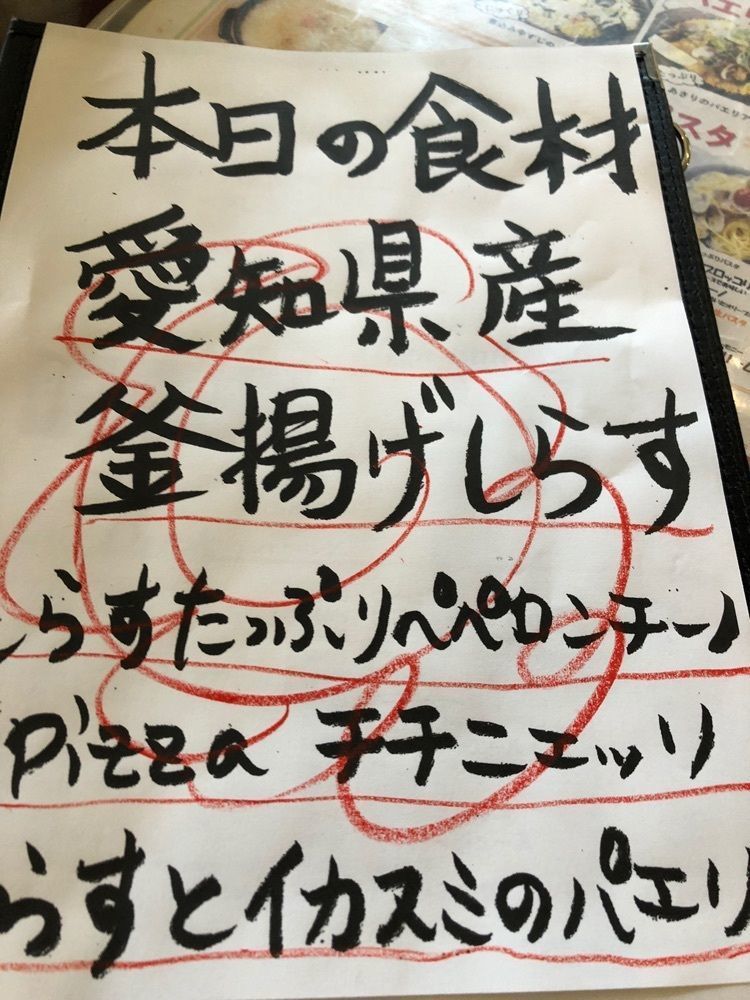 本日の食材
愛知県産
釜揚げしらす
しらすたっぷりペペロンチーノ
Pizza チチニエッリ
らすとイカスミのパエリ
あさりのパエリア
パスタ